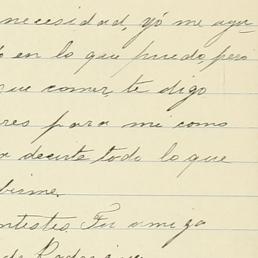 necesidad, yó me ayu-
en lo que puedo, pero
que comer, te digo
res para mi como
a decirte todo lo que
birme.
ntestes. Tu amiga
de Rodrigue